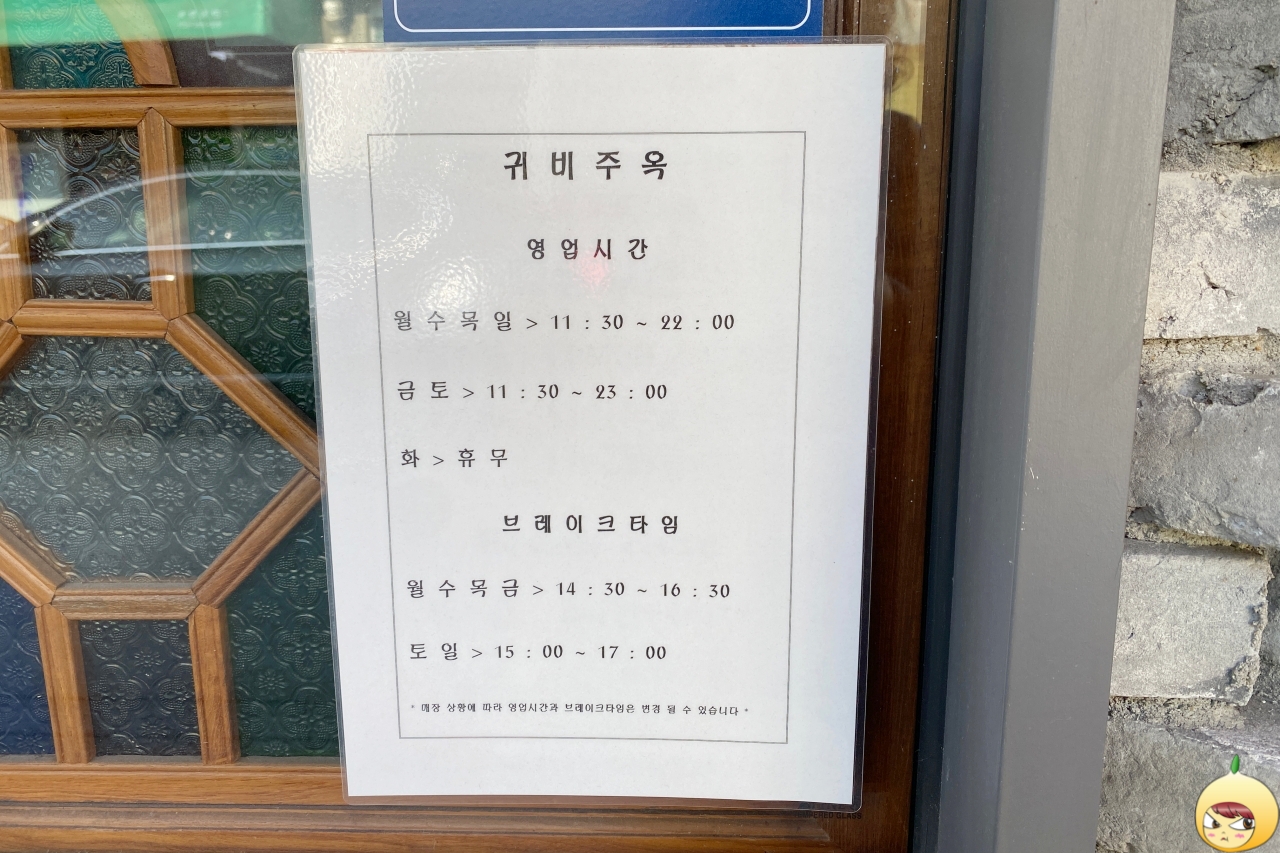 귀비주옥
영업시간
월수목일 > 11 : 30 ~ 22 : 00
금토 > 11 : 30 ~ 23 : 00
화 > 휴무
브레이크타임
월수목금 > 14 : 30 ~ 16 : 30
토일 > 15 : 00 ~ 17 : 00
* 매장 상황에 따라 영업시간과 브레이크타임은 변경 될 수 있습니다 *